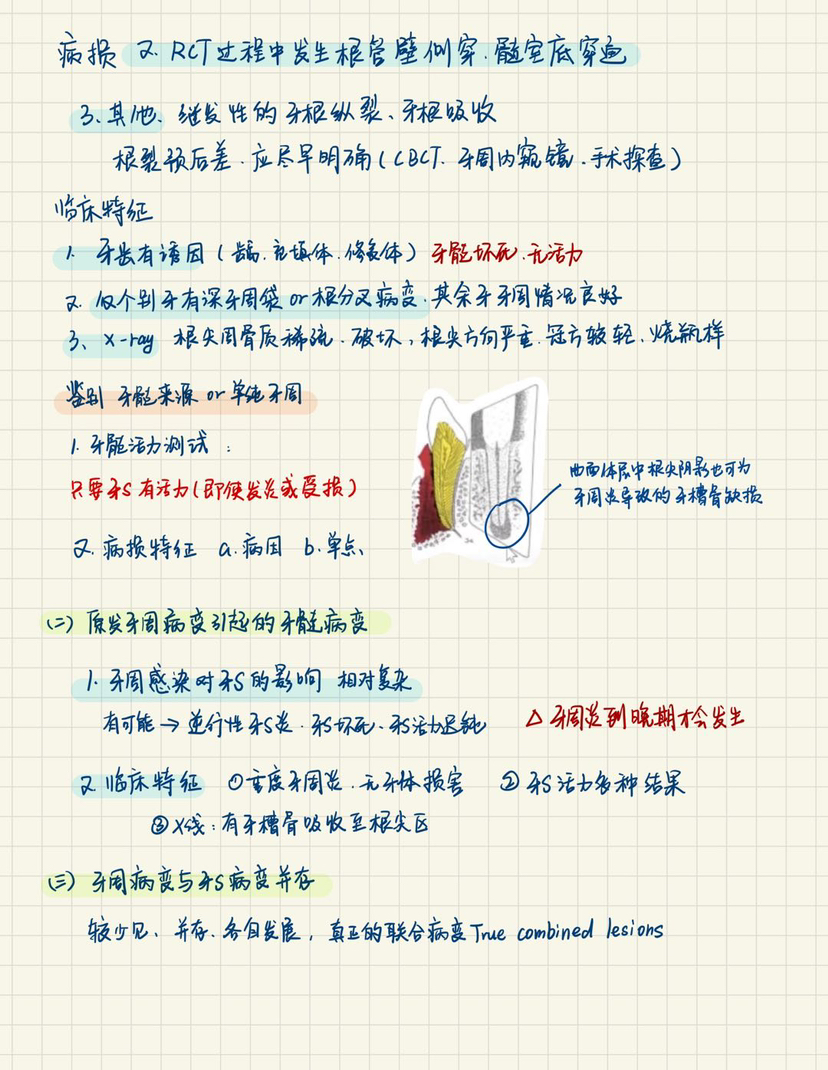 病损 2. RCT过程中发生根管壁侧穿、髓室底穿通
3、其他、继发性的牙根纵裂、牙根吸收
根裂预后差、应尽早明确(CBCT、牙周内窥镜、手术探查)
临床特征
1. 牙齿有诱因(龋、充填体、修复体) 牙髓坏死、无活力
2. 仅个别牙有深牙周袋or根分叉病变、其余牙牙周情况良好
3、X-ray 根尖周骨质稀疏、破坏,根尖方向严重、冠方较轻、烧瓶样
鉴别 牙髓来源 or 单纯牙周
1. 牙髓活力测试:
只要牙S有活力(即使发炎或受损)
曲面体层中根尖阴影也可为
牙周炎导致的牙槽骨缺损
2. 病损特征 a.病因 b.单点、
(二) 原发牙周病变引起的牙髓病变
1. 牙周感染对牙S的影响 相对复杂
有可能→逆行性牙S炎、牙S坏死、牙S活力迟钝 △牙周炎到晚期才会发生
2 临床特征 ①重度牙周炎、无牙体损害 ②牙S活力多种结果
③X线:有牙槽骨吸收至根尖区
(三) 牙周病变与牙S病变并存
较少见、并存、各自发展,真正的联合病变True combined lesions